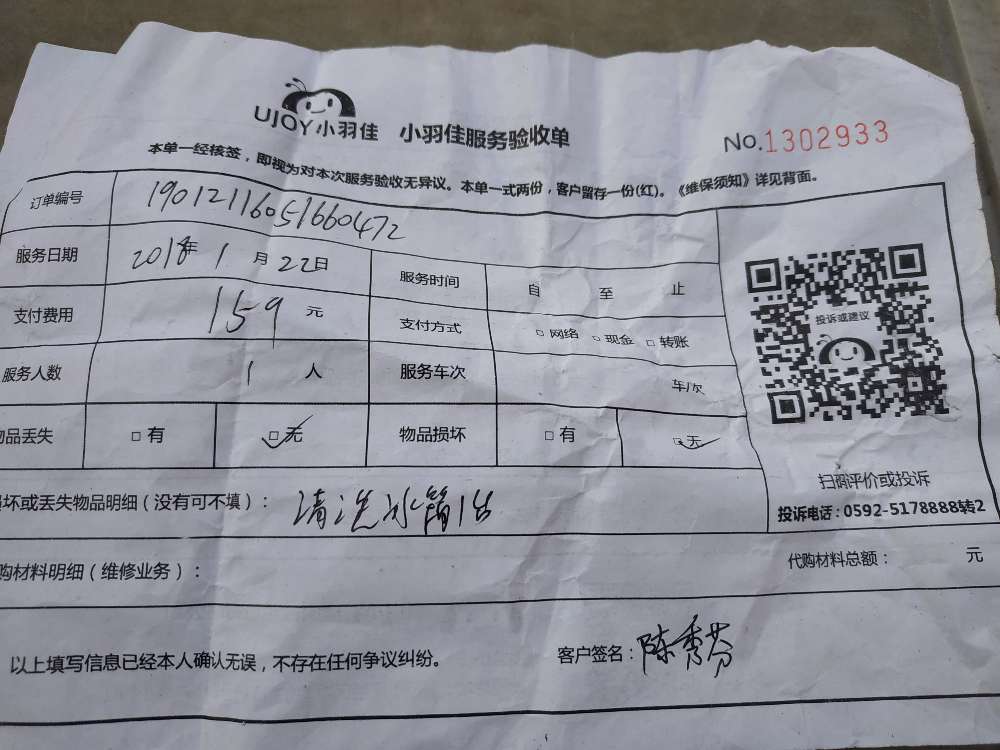 UJOY小羽佳 小羽佳服务验收单 No.1302933
本单一经核签，即视为对本次服务验收无异议。本单一式两份，客户留存一份(红)。《维保须知》详见背面。
订单编号 19012116051660472
服务日期 2018年1月22日 服务时间 自 至 止
支付费用 159元 支付方式 □网络 □现金 □转账
服务人数 1人 服务车次 车/次
品丢失 □有 □无 物品损坏 □有 □无
投诉或建议
扫码评价或投诉
投诉电话：0592-5178888转2
坏或丢失物品明细（没有可不填）： 清洗冰箱1台
购材料明细（维修业务）： 代购材料总额： 元
以上填写信息已经本人确认无误，不存在任何争议纠纷。 客户签名：陈秀芬